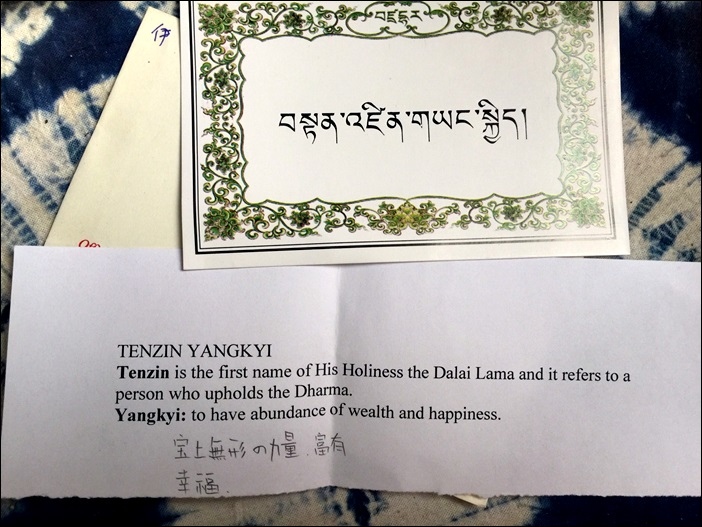 伊
བསྟན་འཛིན་གཡང་སྐྱིད།
TENZIN YANGKYI
Tenzin is the first name of His Holiness the Dalai Lama and it refers to a
person who upholds the Dharma.
Yangkyi: to have abundance of wealth and happiness.
至上無形の力量.富有
幸福.